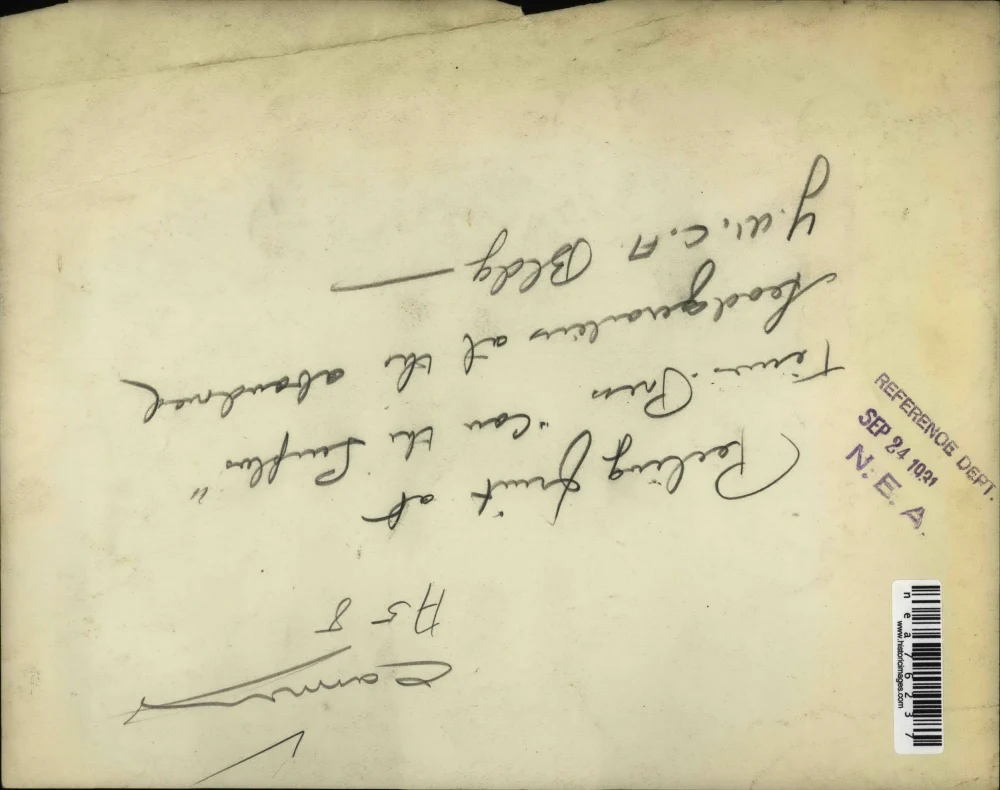 Peeling fruit at
Tenn. Press "Can the Surplus"
headquarters at the abandoned
Y.W.C.A Bldg —
A5-8
REFERENCE DEPT.
SEP 24 1931
N. E. A.
www.historicimages.com
nea76237